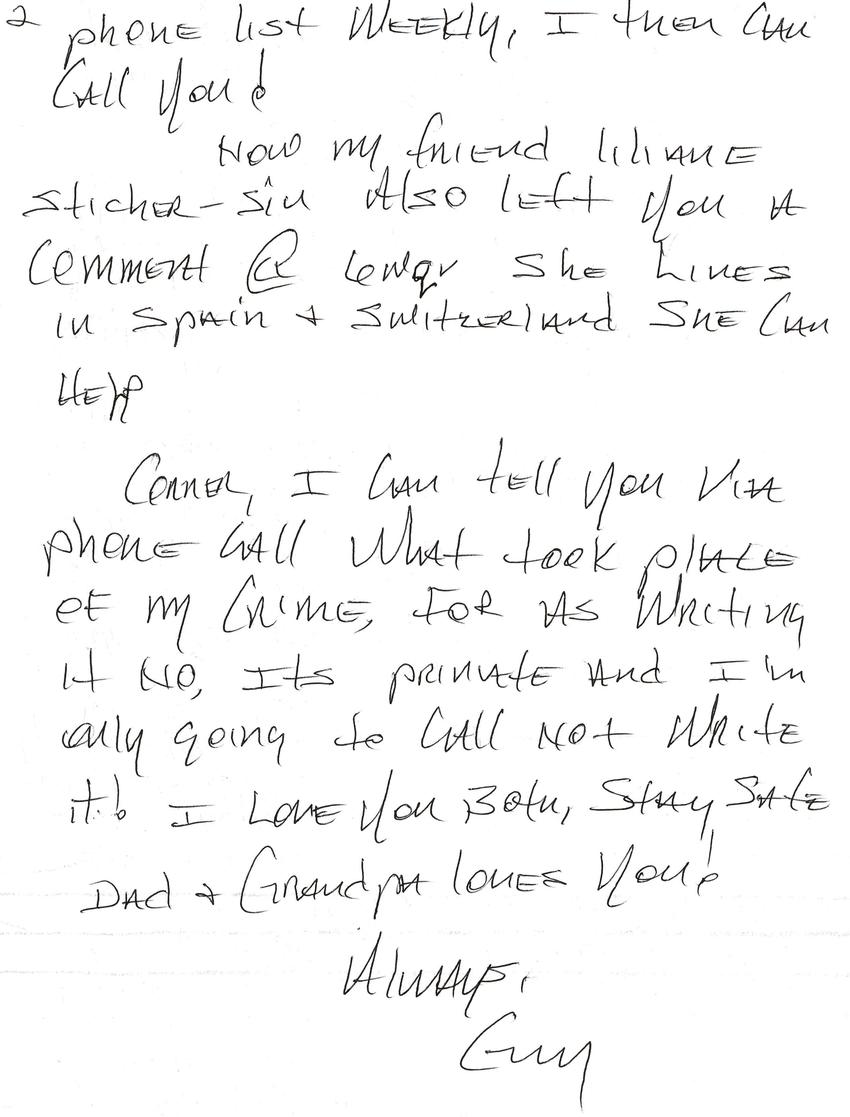 2 phone list weekly, I then can
call you!
Now my friend liliane
sticher-siu Also left you A
comment @ she lives
in spain + switzerland she can
Help
Conner, I can tell you via
phone call what took place
of my crime, for as writing
it NO, Its private and I'm
only going to call not write
it! I Love you Both, Stay Safe
Dad + Grandpa loves you!
Always,
Guy